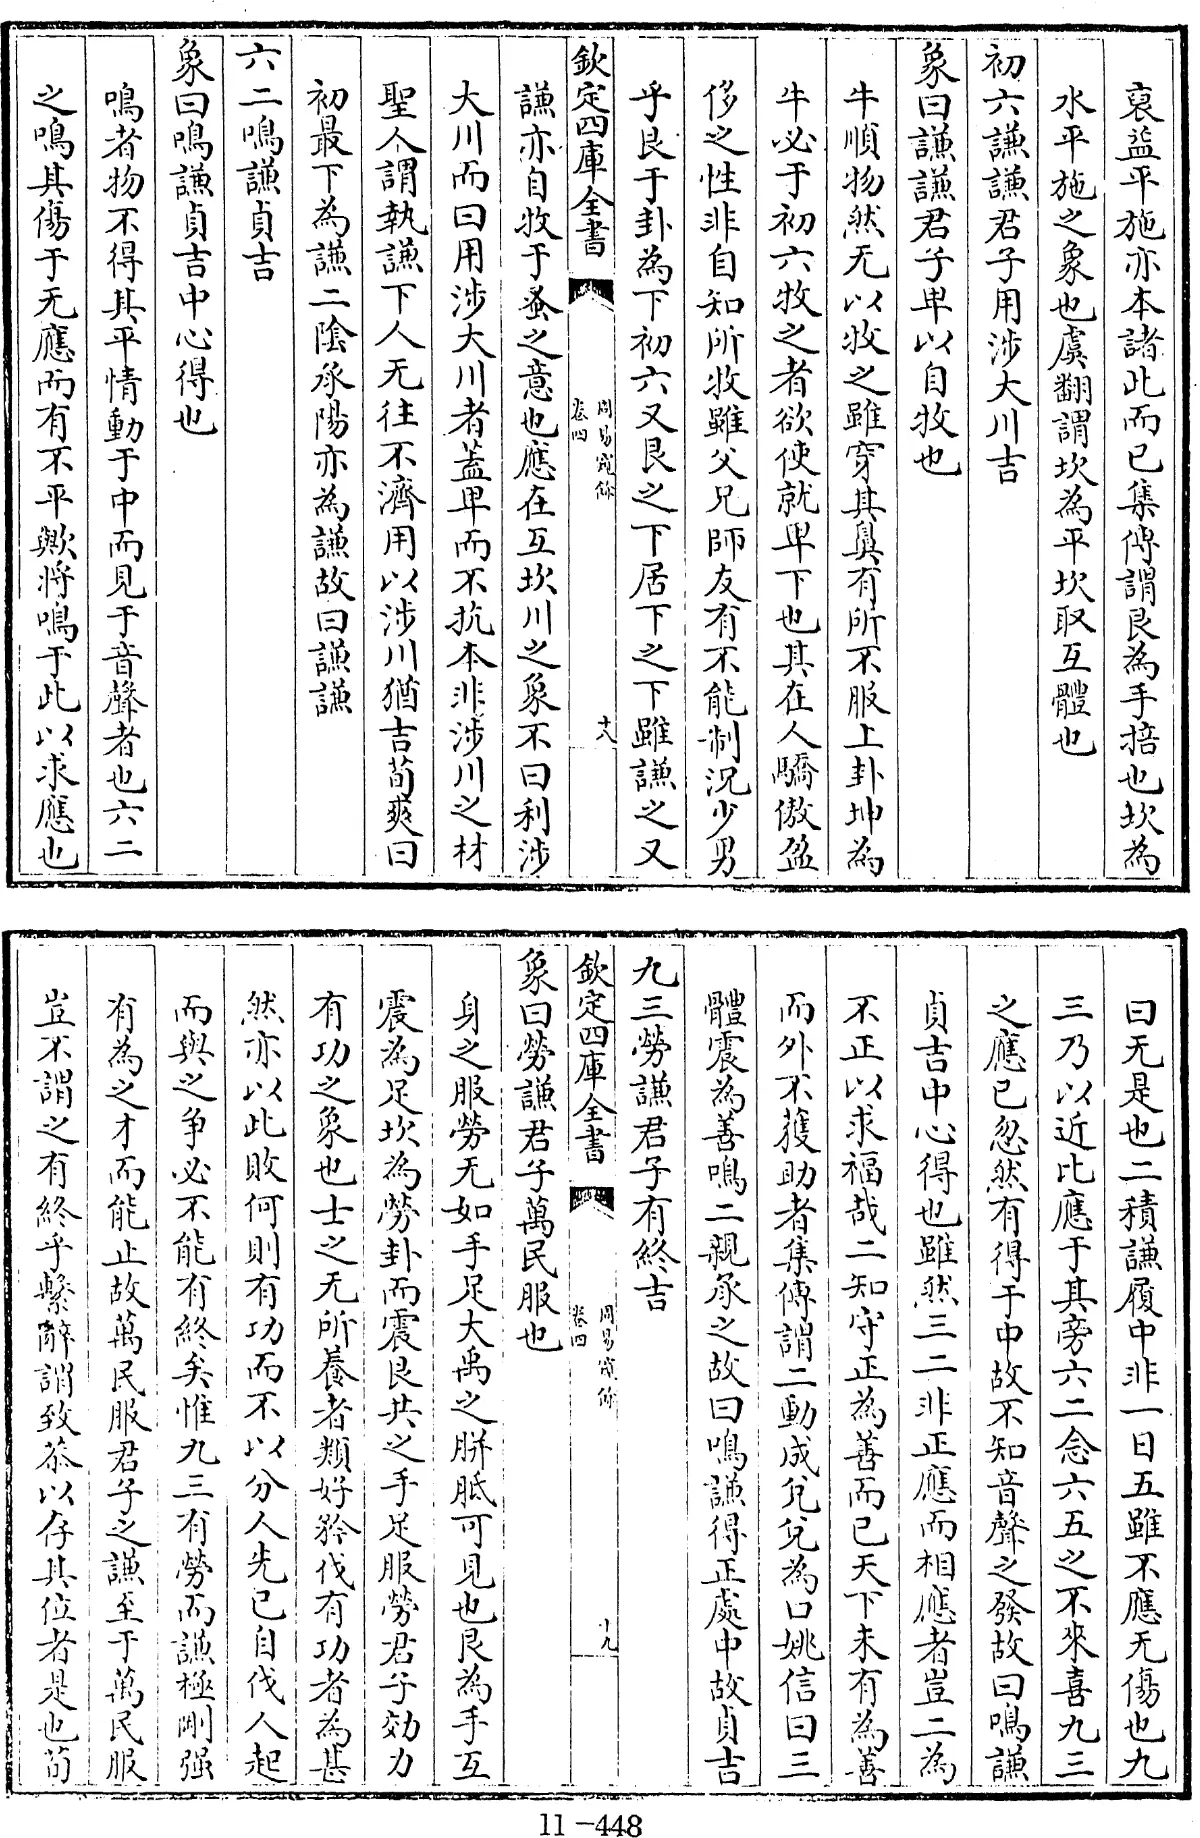 裒益平施亦本諸此而已集傳謂艮為手掊也坎為
水平施之象也虞翻謂坎為平坎取互體也
初六謙謙君子用涉大川吉
象曰謙謙君子卑以自牧也
牛順物然无以牧之雖穿其鼻有所不服上卦坤為
牛必于初六牧之者欲使就卑下也其在人驕傲盈
侈之性非自知所牧雖父兄師友有不能制況少男
乎艮于卦為下初六又艮之下居下之下雖謙之又
欽定四庫全書 周易窺餘 卷四 十八
謙亦自牧于蚤之意也應在互坎川之象不曰利涉
大川而曰用涉大川者蓋卑而不抗本非涉川之材
聖人謂執謙下人无往不濟用以涉川猶吉荀爽曰
初最下為謙二陰承陽亦為謙故曰謙謙
六二鳴謙貞吉
象曰鳴謙貞吉中心得也
鳴者物不得其平情動于中而見于音聲者也六二
之鳴其傷于无應而有不平歟將鳴于此以求應也
曰无是也二積謙履中非一日五雖不應无傷也九
三乃以近比應于其旁六二念六五之不來喜九三
之應已忽然有得于中故不知音聲之發故曰鳴謙
貞吉中心得也雖然三二非正應而相應者豈二為
不正以求福哉二知守正為善而已天下未有為善
而外不獲助者集傳謂二動成兌兌為口姚信曰三
體震為善鳴二親承之故曰鳴謙得正處中故貞吉
九三勞謙君子有終吉
欽定四庫全書 周易窺餘 卷四 十九
象曰勞謙君子萬民服也
身之服勞无如手足大禹之胼胝可見也艮為手互
震為足坎為勞卦而震艮共之手足服勞君子効力
有功之象也士之无所養者類好矜伐有功者為甚
然亦以此敗何則有功而不以分人先已自伐人起
而與之爭必不能有終矣惟九三有勞而謙極剛强
有為之才而能止故萬民服君子之謙至于萬民服
豈不謂之有終乎繫辭謂致恭以存其位者是也荀
11-448